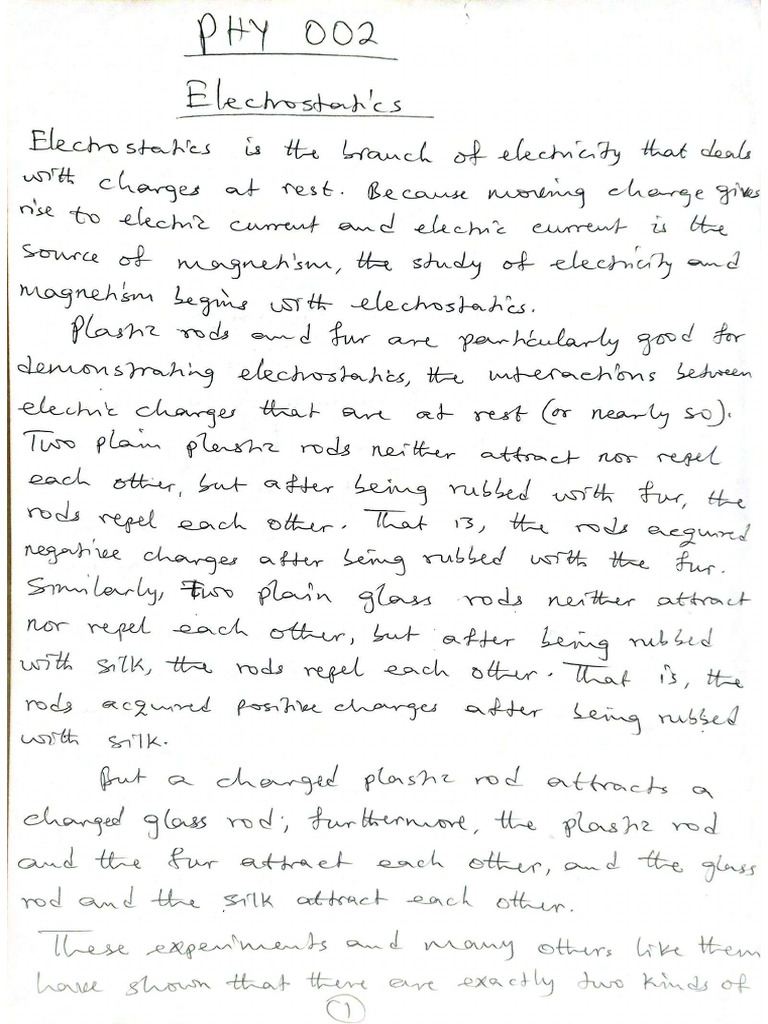 PHY 002
Electrostatics
Electrostatics is the branch of electricity that deals
with charges at rest. Because moving charge gives
rise to electric current and electric current is the
source of magnetism, the study of electricity and
magnetism begins with electrostatics.
Plastic rods and fur are particularly good for
demonstrating electrostatics, the interactions between
electric charges that are at rest (or nearly so).
Two plain plastic rods neither attract nor repel
each other, but after being rubbed with fur, the
rods repel each other. That is, the rods acquired
negative charges after being rubbed with the fur.
Similarly, Two plain glass rods neither attract
nor repel each other, but after being rubbed
with silk, the rods repel each other. That is, the
rods acquired positive charges after being rubbed
with silk.
But a charged plastic rod attracts a
charged glass rod; furthermore, the plastic rod
and the fur attract each other, and the glass
rod and the silk attract each other.
These experiments and many others like them
have shown that there are exactly two kinds of
1